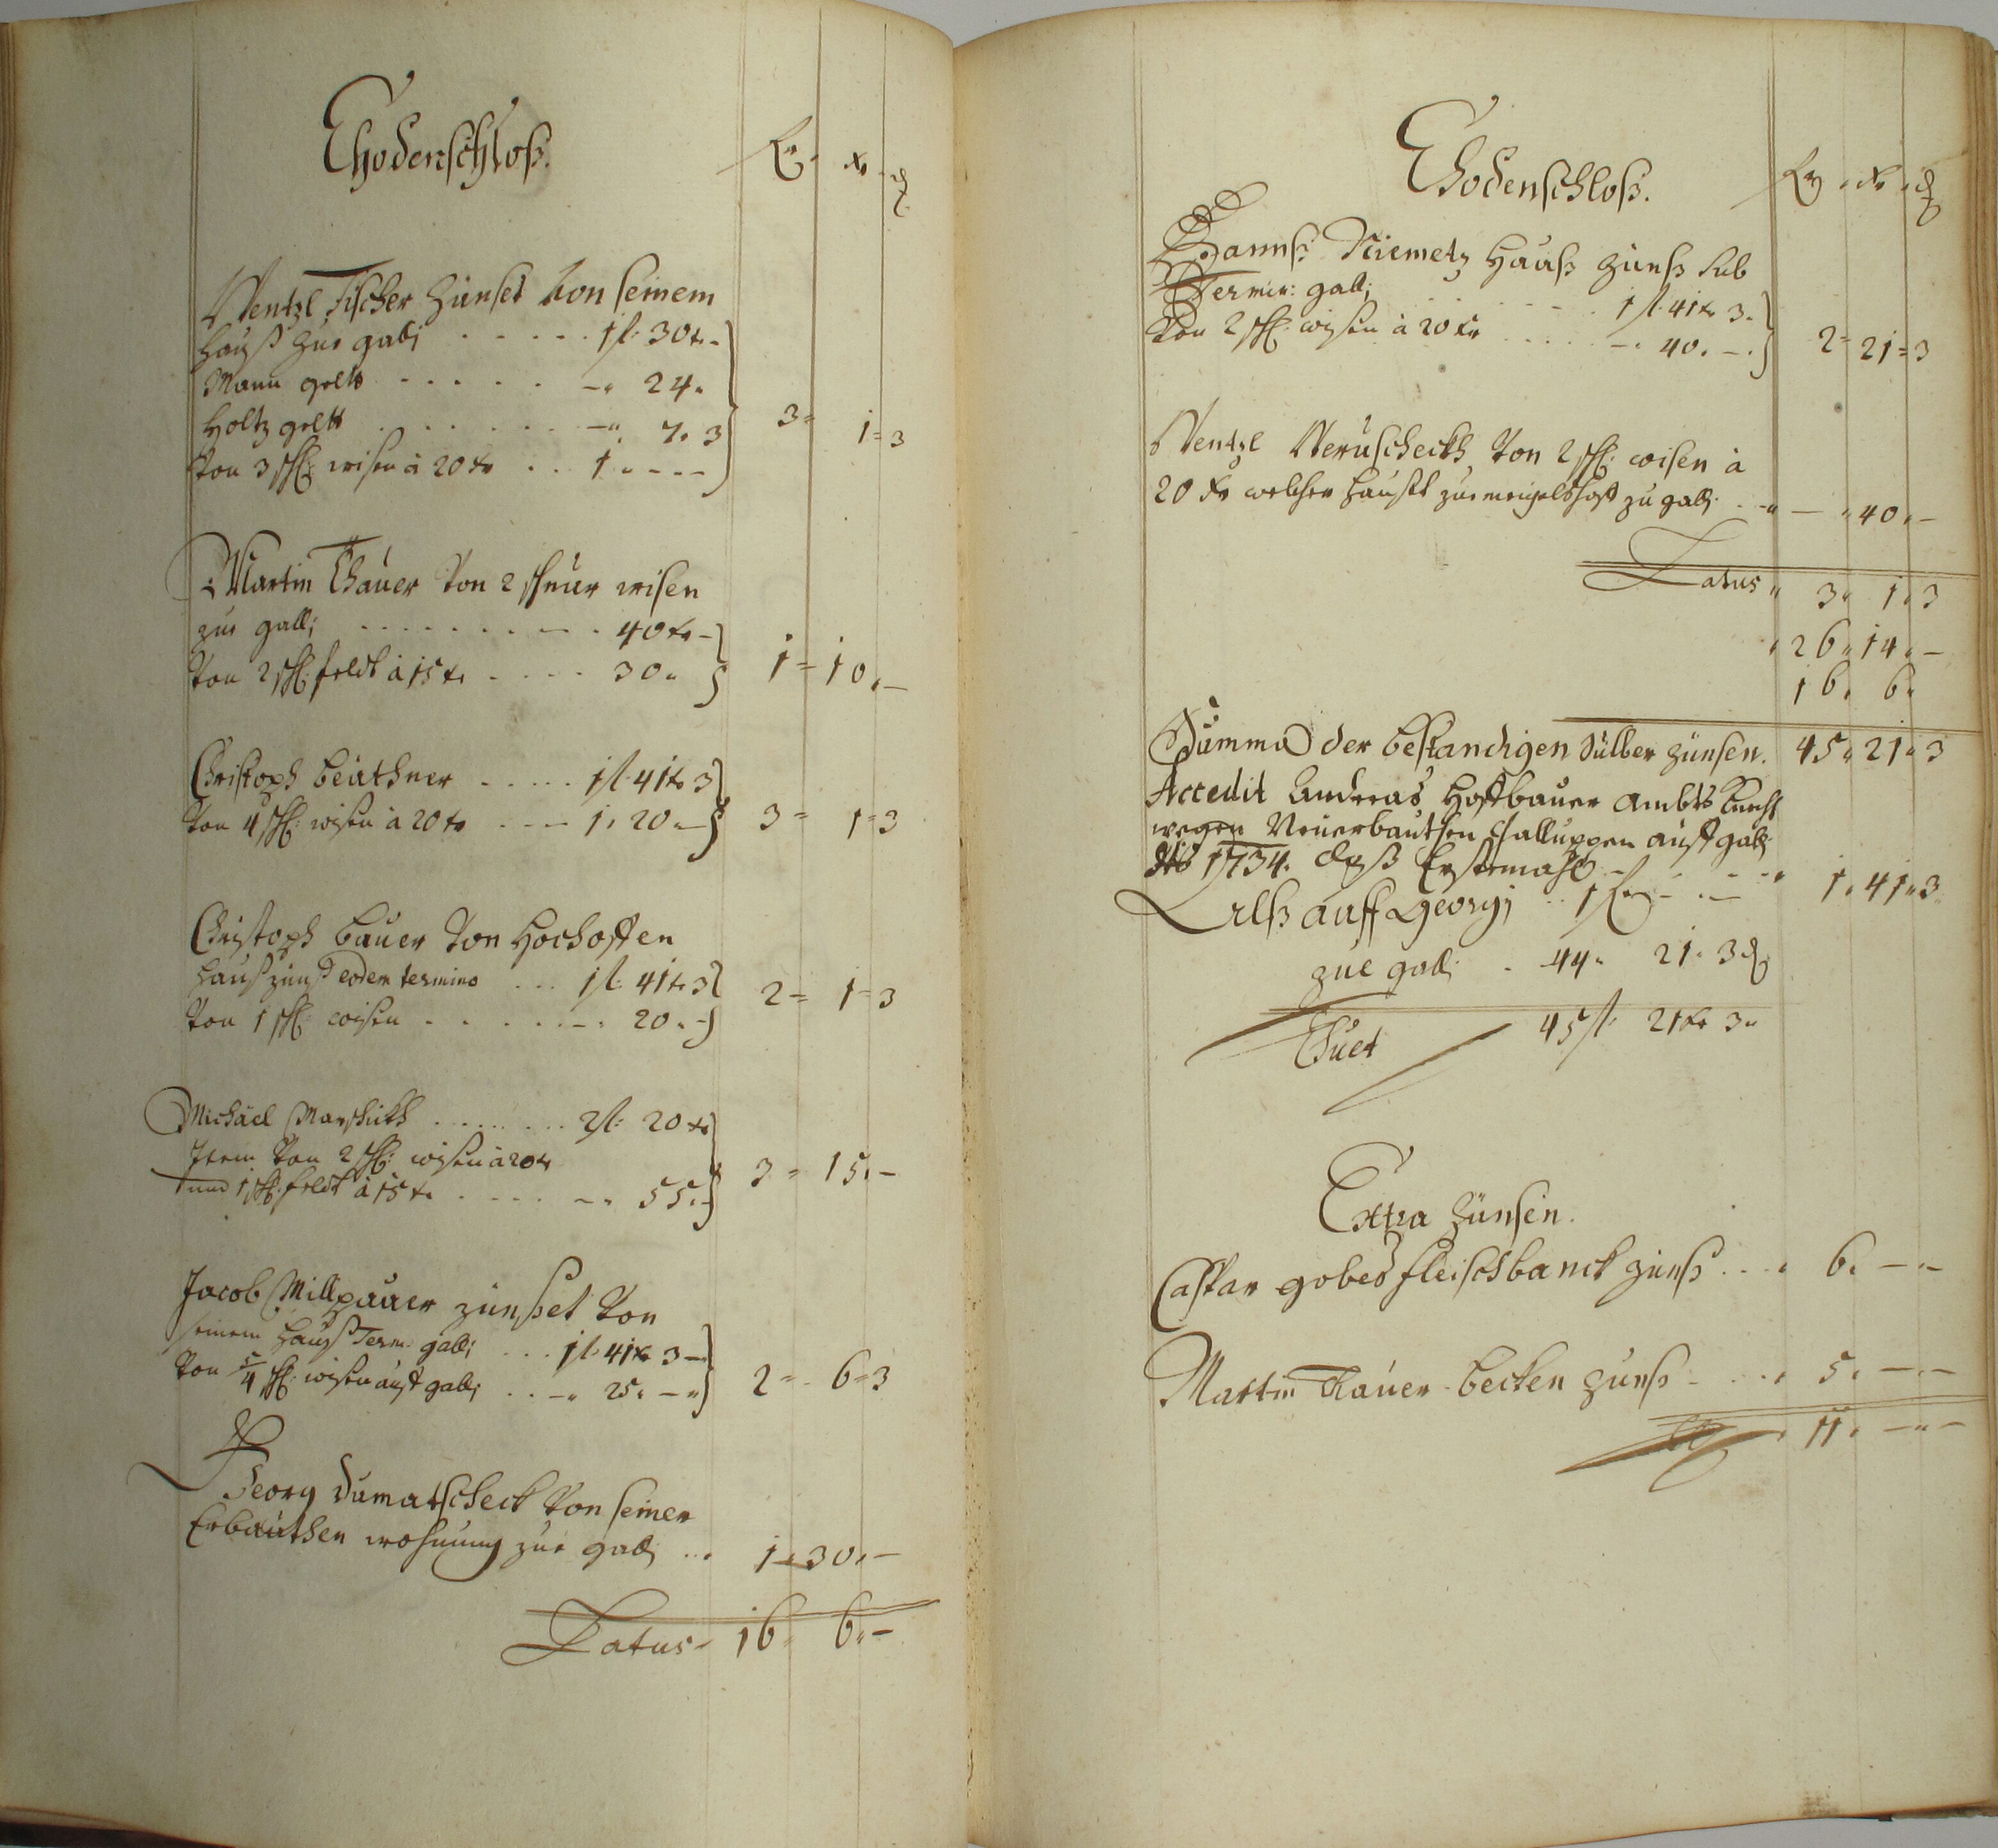 Chodenschloß.
fl. xr. ₰
Wentzl Fischer Zünset von seinem
Hauß zue galli . . . . . 1 fl: 30 xr -
Mann gelt - . . . . -" 24"
Holtz gelt . . . . . . -". 7. 3 3= 1=3
Von 3 schl: wisen à 20 xr . . 1 " - - -
Martin Thauer Von 2 schnur wisen
zue galli . . . . . . . 40 xr -
Von 2 schl: feldt à 15 xr . . . . 30 " 1= 10. -
Christoph beüthner . . . . . 1 fl. 41 xr 3
Von 4 schl: wisen à 20 xr . . - 1. 20 - 3= 1=3
Christoph bauer Von Hochofen
Haußzünß eodem termino . . . 1 fl: 41 xr 3
Von 1 schl: wisen . . . . . -. 20 . - 2= 1=3
Michäel Marschikh . . . . . . . 2 fl: 20 xr
Item Von 2 schl: wisen à 20 xr
und 1 schl: feldt à 15 xr . . . . -. 55. - 3= 15. -
Jacob Millpauer zünßet Von
seinem Hauß Term. galli . . . 1 fl. 41 xr 3 -
Von 5/4 schl: wisen auf galli . . -" 25. - " 2= 6=3
Georg Dumatscheck Von seiner
Erbauthen wohnung zue galli . . . 1. 30. -
Latus - 16. 6. -
Chodenschloß.
fl. xr. ₰
Hannß Niemetz Hauß zünß sub
Termin: galli . . . . 1 fl. 41 xr 3.
Von 2 schl: wisen à 20 xr . . . . . -. 40. -. 2= 21=3
Wentzl Weruscheckh Von 2 schl: wisen à
20 xr welcher haußt zue zu galli . -" - " 40. -
Latus " 3. 1. 3
" 26. 14. -
16. 6.
Summa der bestandigen Silber zünsen. 45. 21. 3
Accedit Andreas Hoffbauer Ambts Knecht
wegen Neuerbauthen Challuppen auff galli
1734. daß Erstemahl - . - - " 1. 41. 3
Alß auff Georgi . . 1 fl. - . -
zue galli . 44. 21. 3 ₰
Thuet 45 fl. 21 xr 3.
Extra Zünsen.
Caspar gobes fleischbanck zünß . . . 6. - -
Martin Thauer becken zünß - . . . 5. - -
11. - -